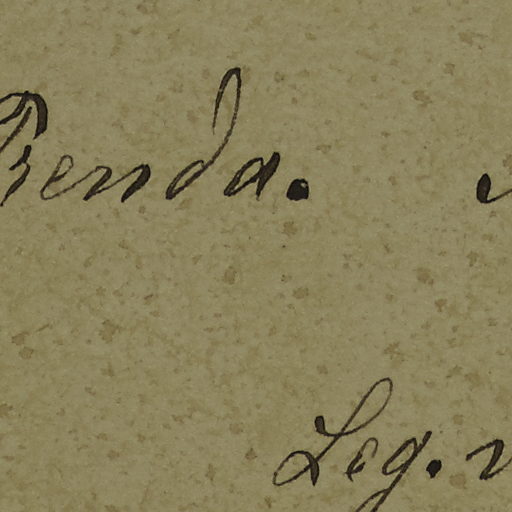 Benda.
Leg.